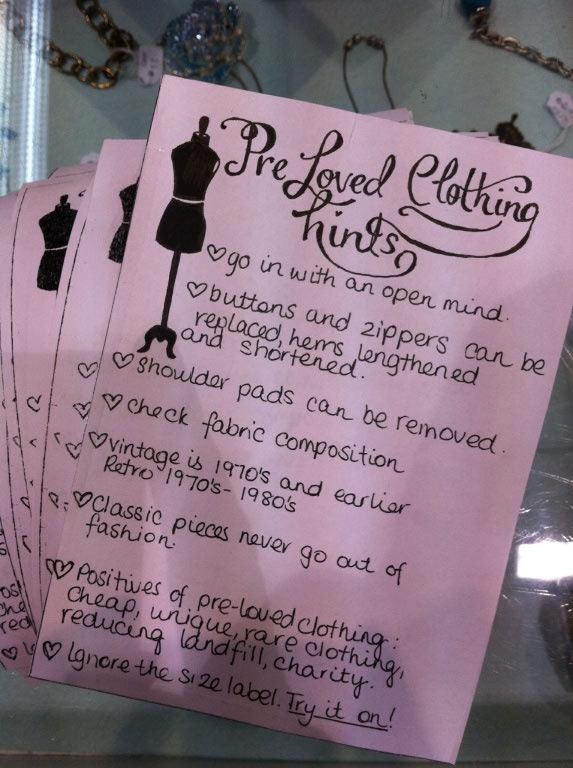 Pre Loved Clothing
hints
go in with an open mind.
buttons and zippers can be
replaced, hems lengthened
and shortened.
shoulder pads can be removed.
check fabric composition
vintage is 1970's and earlier
Retro 1970's - 1980's
Classic pieces never go out of
fashion.
Positives of pre-loved clothing:
cheap, unique, rare clothing,
reducing landfill, charity.
Ignore the size label. Try it on!